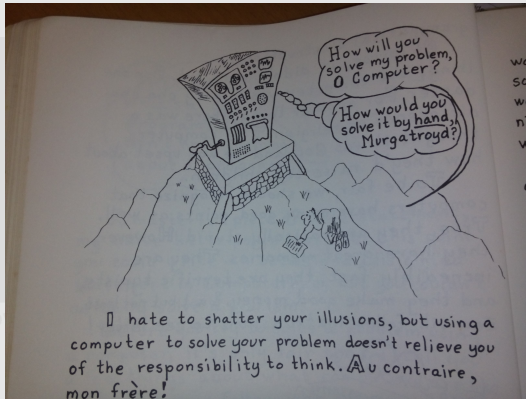 How will you
solve my problem,
O Computer?
How would you
solve it by hand,
Murgatroyd?
I hate to shatter your illusions, but using a
computer to solve your problem doesn't relieve you
of the responsibility to think. Au contraire,
mon frère!